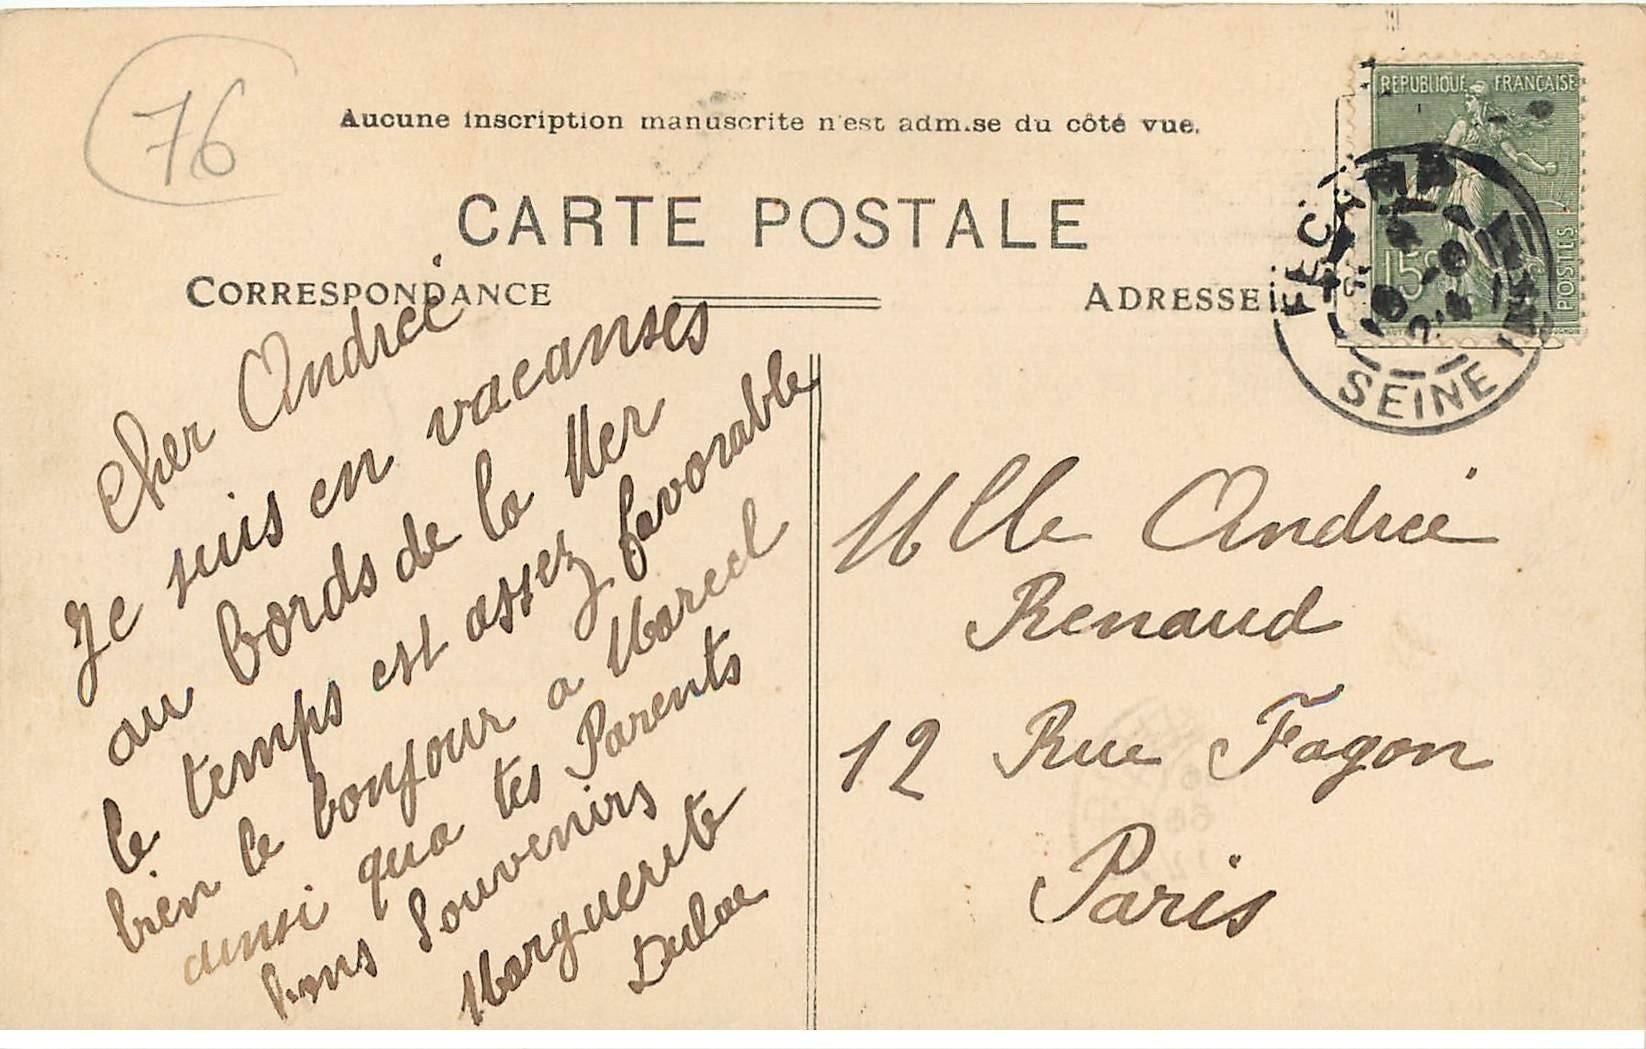 76
Aucune inscription manuscrite n'est admise du côté vue.
CARTE POSTALE
CORRESPONDANCE
ADRESSE
REPUBLIQUE FRANÇAISE
15c
POSTES
FECAMP
SEINE INF
cher Andrée
Je suis en vacanses
au bords de la Mer
le temps est assez favorable
bien le bonjour a Marcel
ainsi qua tes Parents
bons Souvenirs
Marguerite
Dulac
Mlle Andrée
Renaud
12 Rue Fagon
Paris